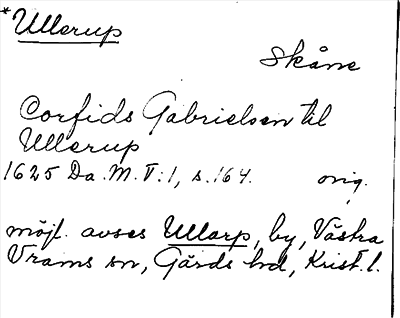 *Ullerup
Skåne
Corfids Gabrielsen til
Ullerup
1625 Da. M. V:1, s. 164. orig.
möjl. avses Ullarp, by, Västra
Vrams sn, Gärds hd, Krist. l.